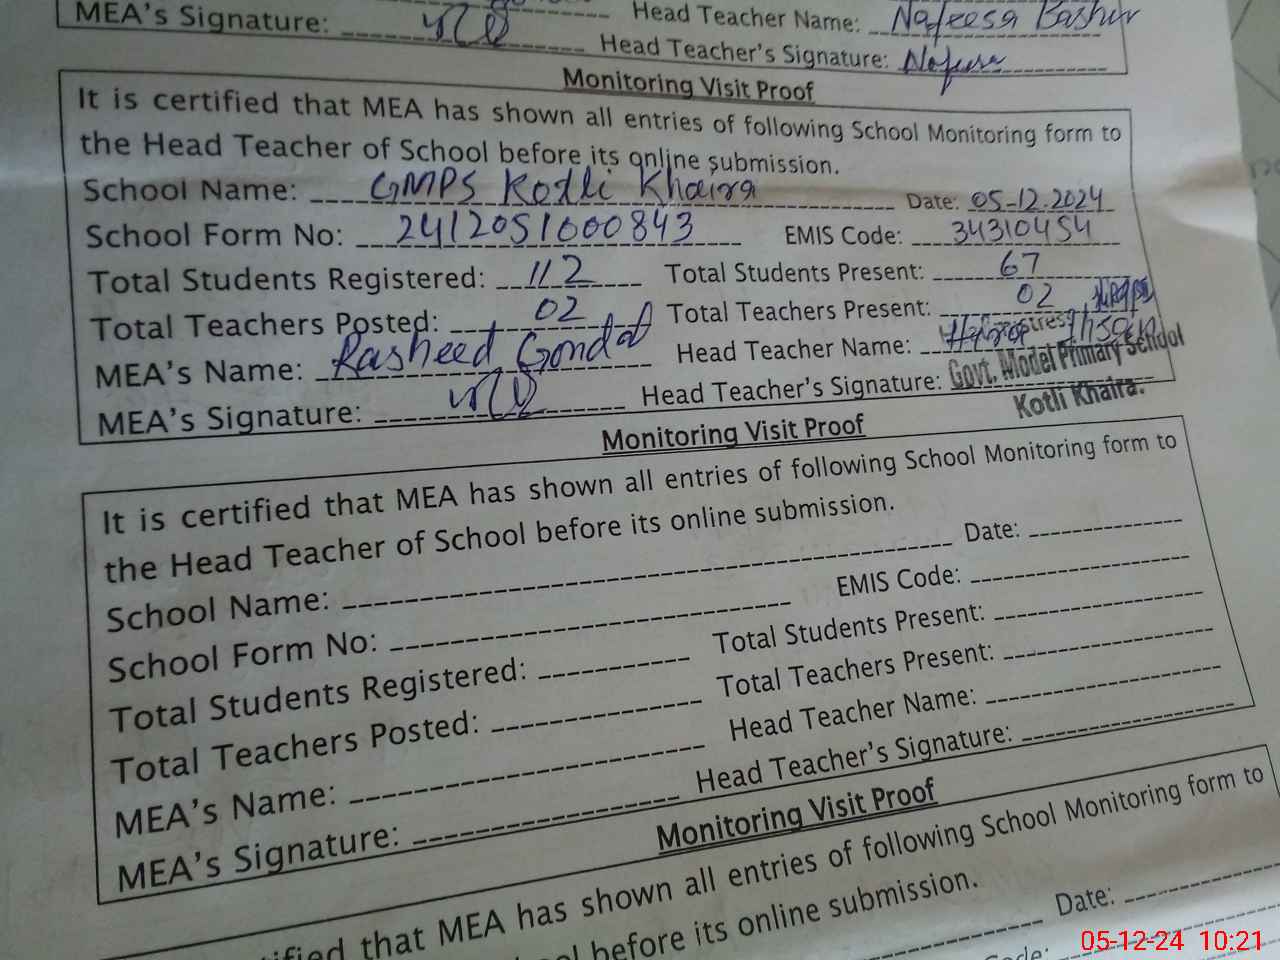 MEA's Signature: Head Teacher Name: Nafeesa Bashir
Head Teacher's Signature: Nafeesa
Monitoring Visit Proof
It is certified that MEA has shown all entries of following School Monitoring form to
the Head Teacher of School before its online submission.
School Name: GMPS Kotli Khaira Date: 05-12-2024
School Form No: 2412051000843 EMIS Code: 34310454
Total Students Registered: 112 Total Students Present: 67
Total Teachers Posted: 02 Total Teachers Present: 02
MEA's Name: Rasheed Gondal Head Teacher Name:
MEA's Signature: Head Teacher's Signature:
Govt. Model Primary School
Kotli Khaira.
Monitoring Visit Proof
It is certified that MEA has shown all entries of following School Monitoring form to
the Head Teacher of School before its online submission.
School Name: Date:
School Form No: EMIS Code:
Total Students Registered: Total Students Present:
Total Teachers Posted: Total Teachers Present:
MEA's Name: Head Teacher Name:
MEA's Signature: Head Teacher's Signature:
Monitoring Visit Proof
tified that MEA has shown all entries of following School Monitoring form to
ool before its online submission.
Date:
Code:
05-12-24 10:21